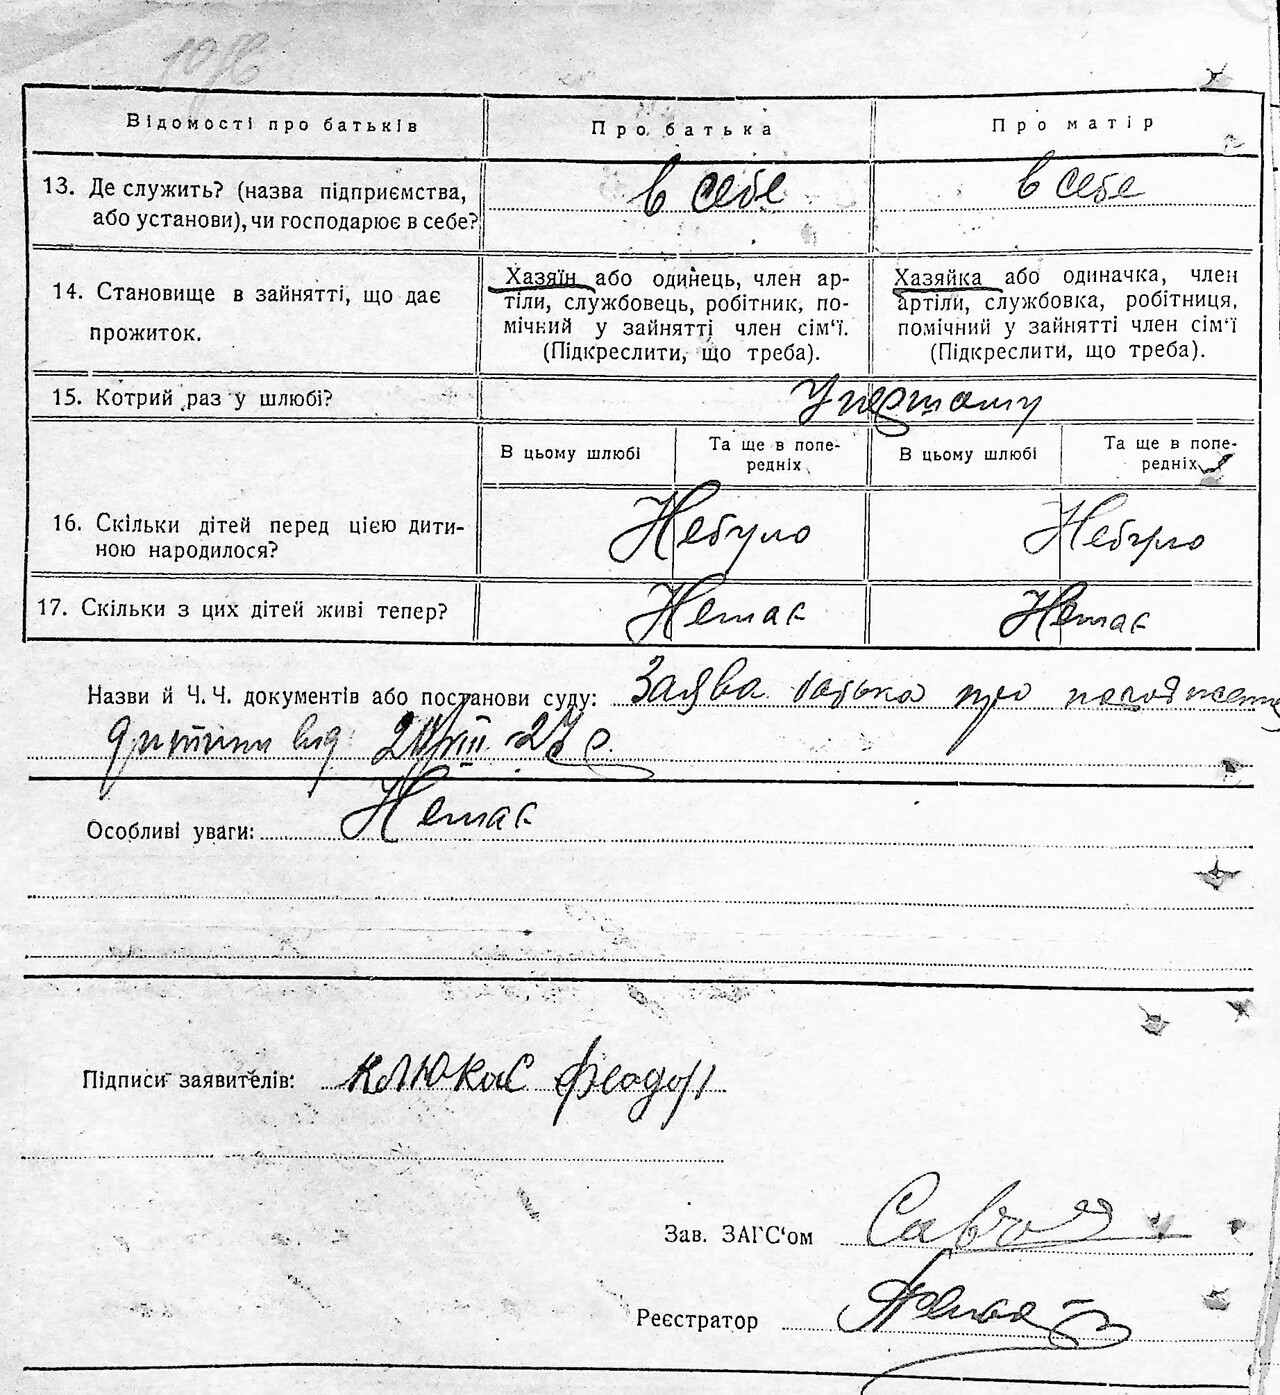 Відомості про батьків
Про батька
Про матір
13. Де служить? (назва підприємства,
або установи), чи господарює в себе?
в себе
в себе
14. Становище в зайнятті, що дає
прожиток.
Хазяїн або одинець, член ар-
тіли, службовець, робітник, по-
мічний у зайнятті член сім'ї.
(Підкреслити, що треба).
Хазяйка або одиначка, член
артіли, службовка, робітниця,
помічний у зайнятті член сім'ї
(Підкреслити, що треба).
15. Котрий раз у шлюбі?
У першому
В цьому шлюбі
Та ще в попе-
редніх
В цьому шлюбі
Та ще в попе-
редніх
16. Скільки дітей перед цією дити-
ною народилося?
Небуло
Небуло
17. Скільки з цих дітей живі тепер?
Немає
Немає
Назви й Ч. Ч. документів або постанови суду: Заява батька про
дитини від
Особливі уваги: Немає
Підписи заявителів: Клюкас Феодор
Зав. ЗАГС'ом
Реєстратор